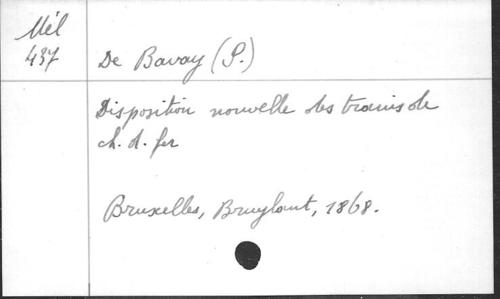 Mél
437
De Bavay (P.)
Disposition nouvelle des trains de
ch. d. fer
Bruxelles, Bruylant, 1868.